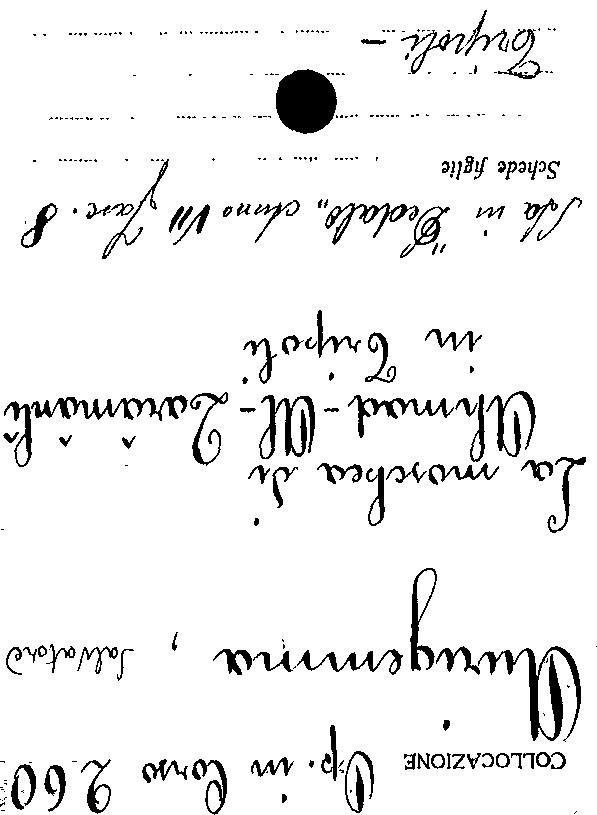 COLLOCAZIONE Op. in Corso 260
Aurigemma, Salvatore
La moschea di
Ahmad-Al-Qarâmânlî
in Tripoli
Sta in "Dedalo„ Anno VII Fasc. 8
Schede figlie
Tripoli -